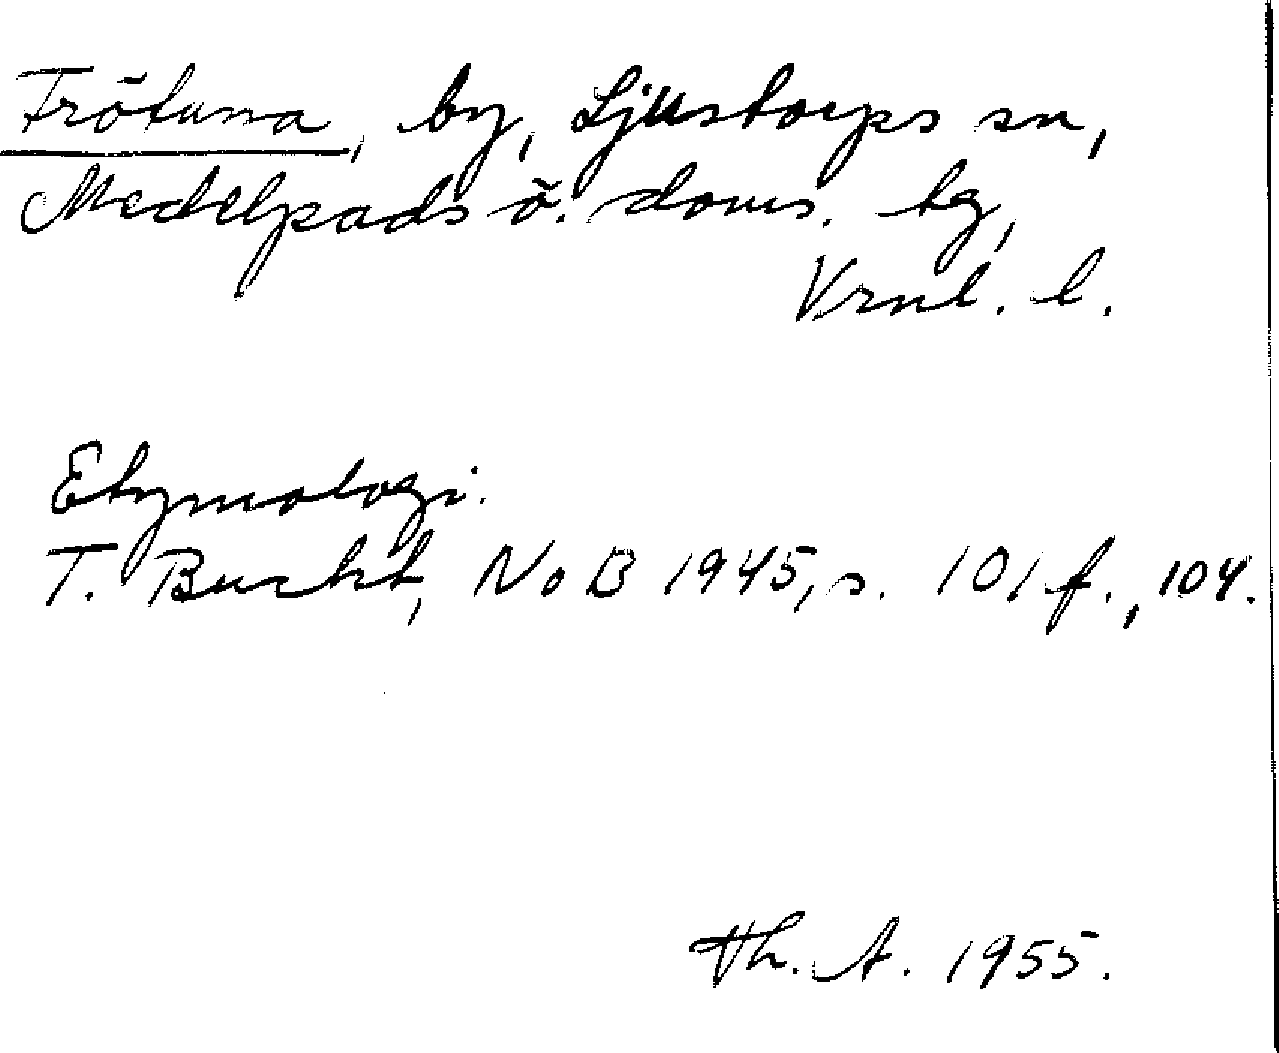 Frötuna, by, Ljustorps sn,
Medelpads ö. doms. tg,
Vrnl. l.
Etymologi.
T. Bucht, NoB 1945, s. 101 f., 104.
Th. A. 1955.